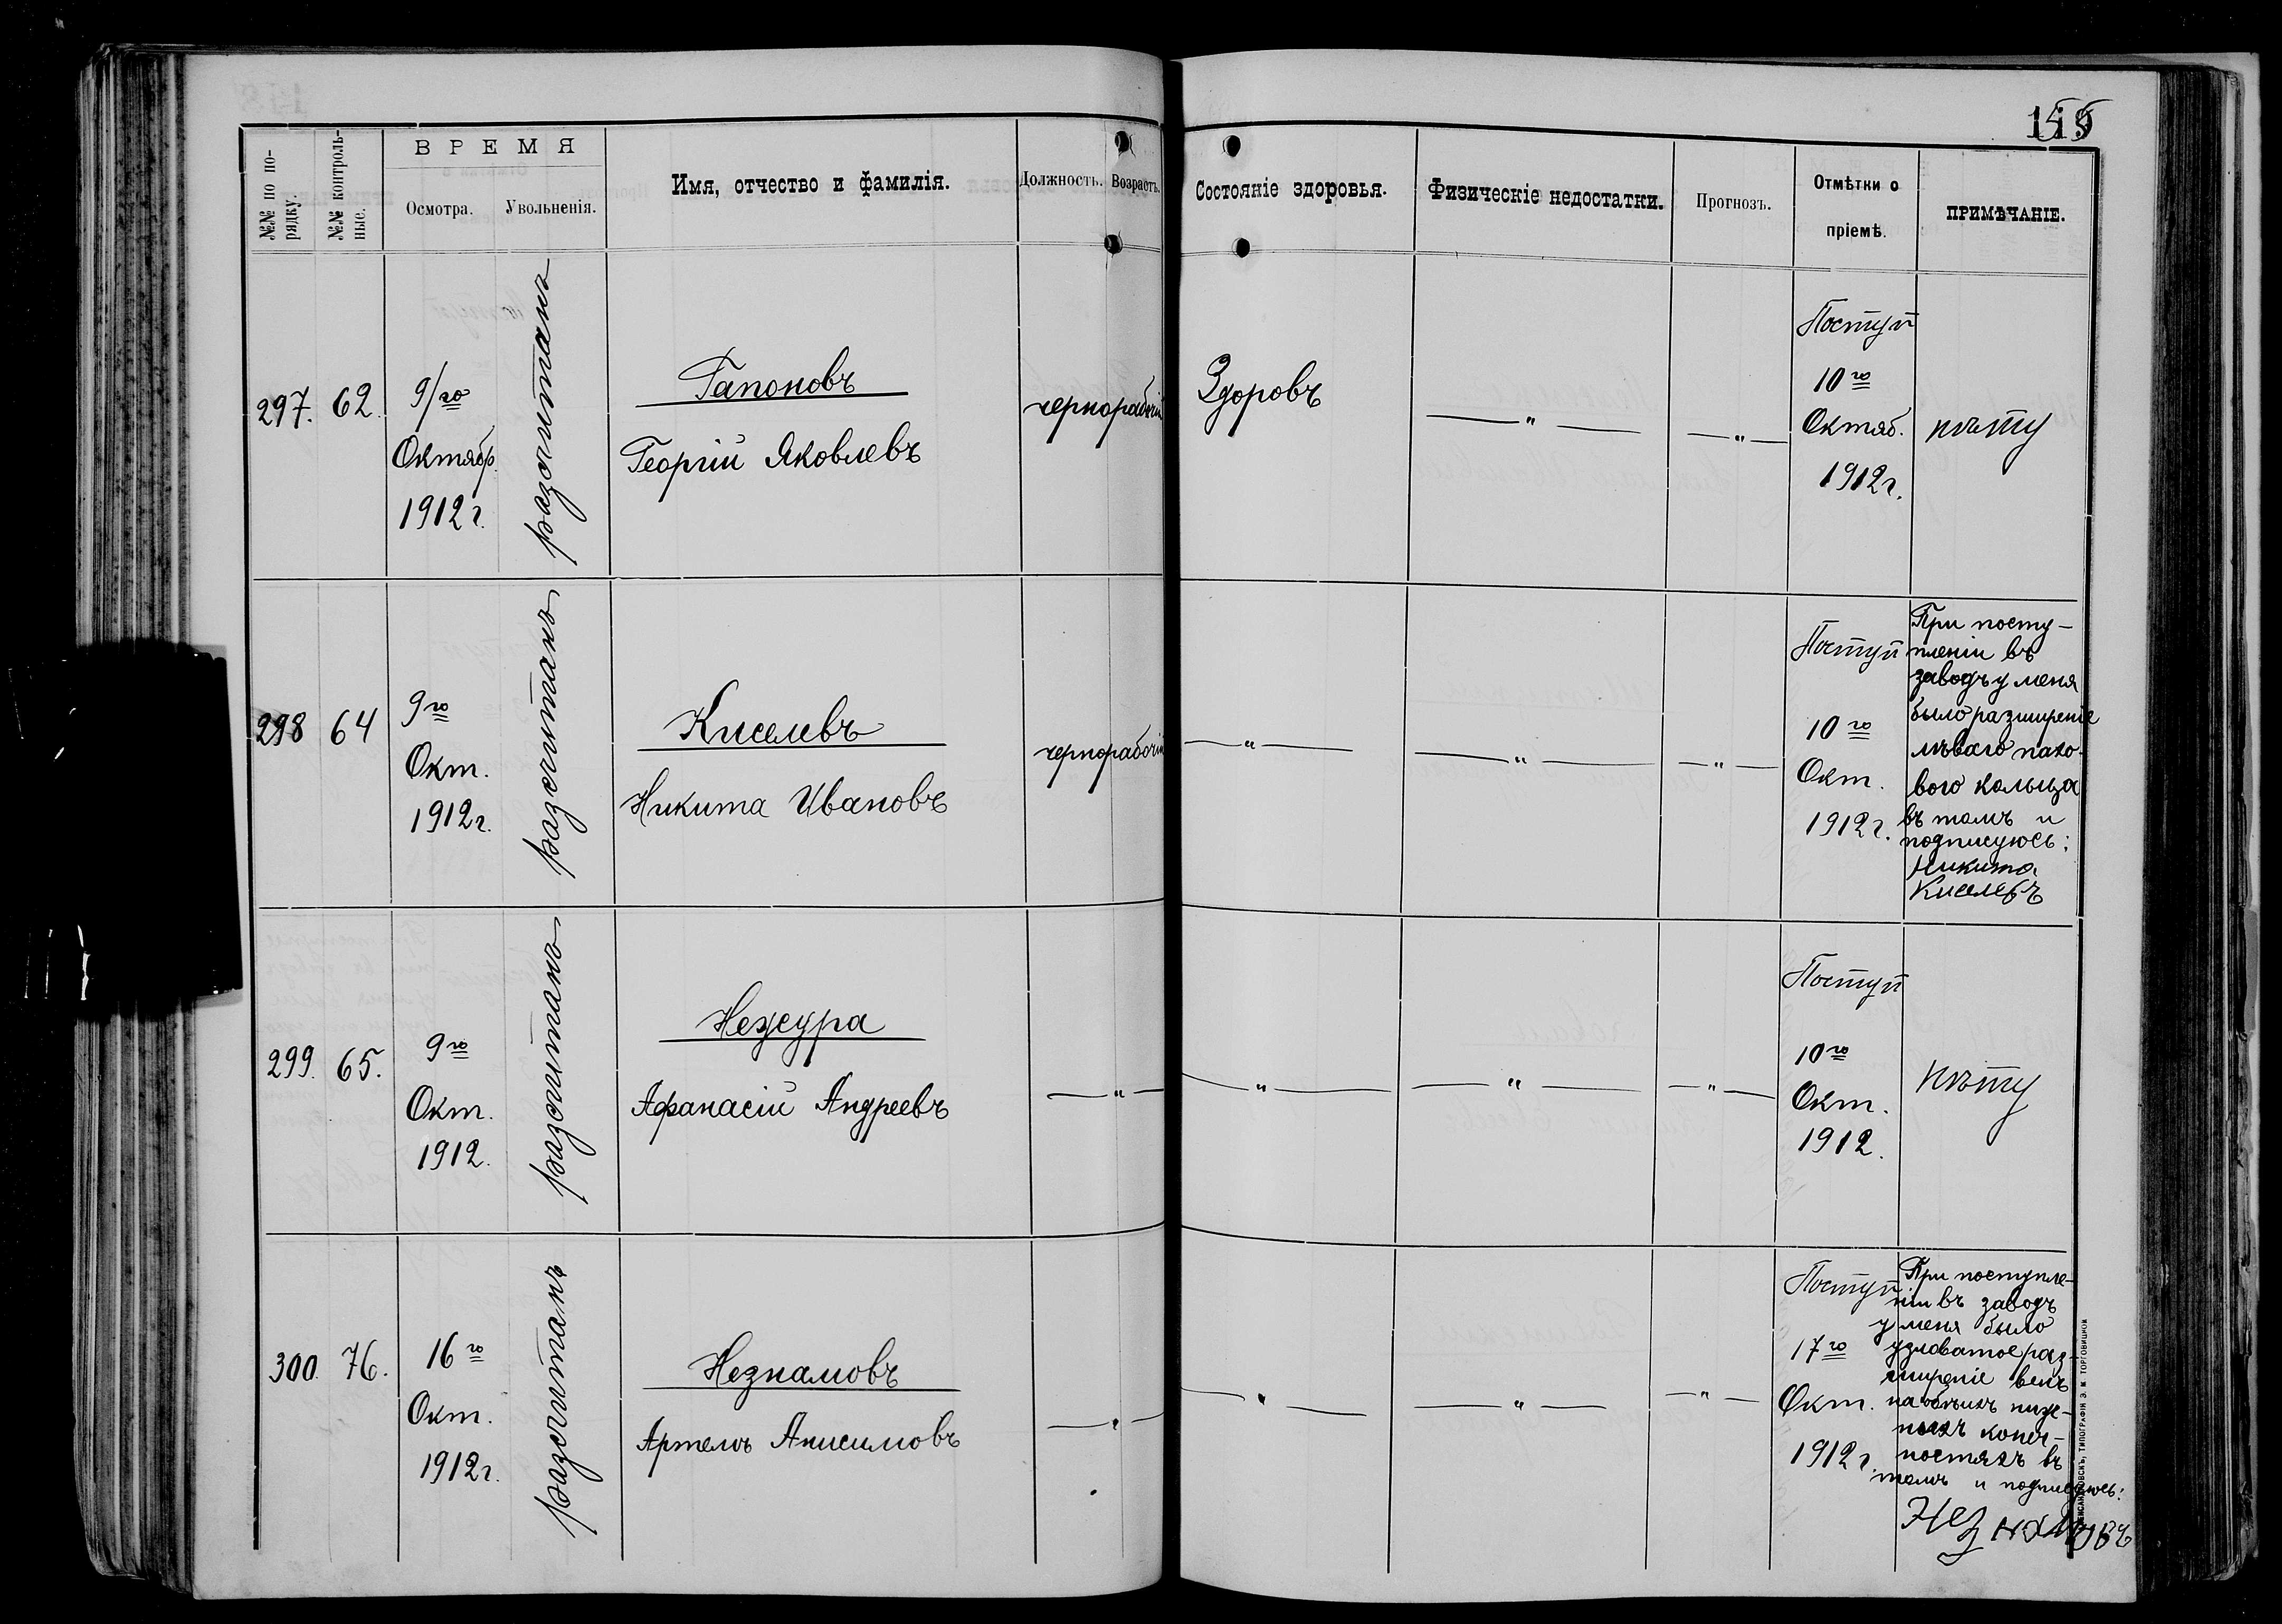 ВРЕМЯ
№№ по по-
рядку.
№№ контроль-
ные.
Осмотра.
Увольненія.
Имя, отчество и фамилія.
Должность.
Возрастъ.
Состояніе здоровья.
Физическіе недостатки.
Прогнозъ.
Отмѣтки о
пріемѣ.
ПРИМѢЧАНІЕ.
297.
62.
9/го
Октябр.
1912 г.
разсчитанъ
Гапоновъ
Георгій Яковлевъ
чернорабочій
Здоровъ
— " —
— " —
Поступ
10го
Октяб.
1912 г.
нѣту
298
64
9го
Окт.
1912 г.
разсчитанъ
Киселевъ
Никита Ивановъ
чернорабочій
— " —
— " —
— " —
Поступ
10го
Окт.
1912 г.
При посту-
пленіи въ
заводъ у меня
было разширеніе
лѣваго пахо-
вого кольца
въ томъ и
подписуюсь:
Никита
Киселевъ
299.
65.
9го
Окт.
1912.
разсчитанъ
Нежура
Афанасій Андреевъ
— " —
— " —
— " —
— " —
Поступ
10го
Окт.
1912.
нѣту
300.
76.
16го
Окт.
1912 г.
разсчитанъ
Незнамовъ
Артемъ Анисимовъ
— " —
— " —
— " —
— " —
Поступ
17го
Окт.
1912 г.
При поступле-
ніи въ заводъ
у меня было
узловатое раз-
ширеніе венъ
на обѣихъ ниж-
нихъ конеч-
ностяхъ въ
томъ и подписуюсь:
Незнамовъ
ТИПОГРАФІЯ Э. М. ТОРГОВИЦКОЙ